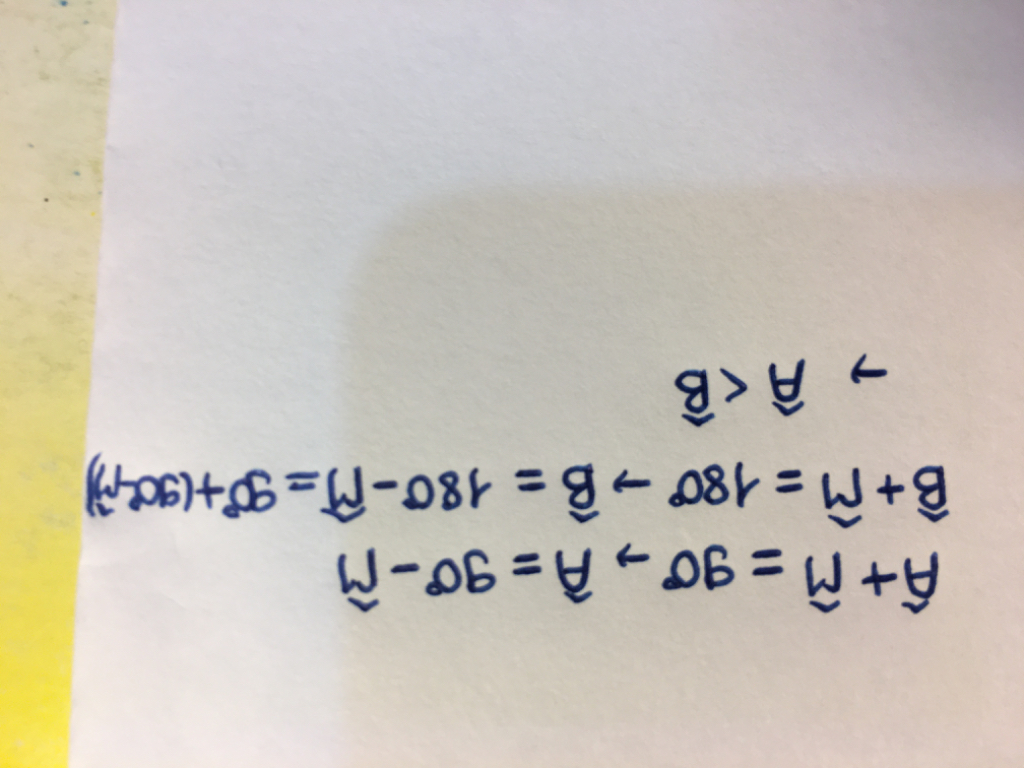 Â + M̂ = 90° → Â = 90° - M̂
B̂ + M̂ = 180° → B̂ = 180 - M̂ = 90° + (90° - M̂)
→ Â < B̂